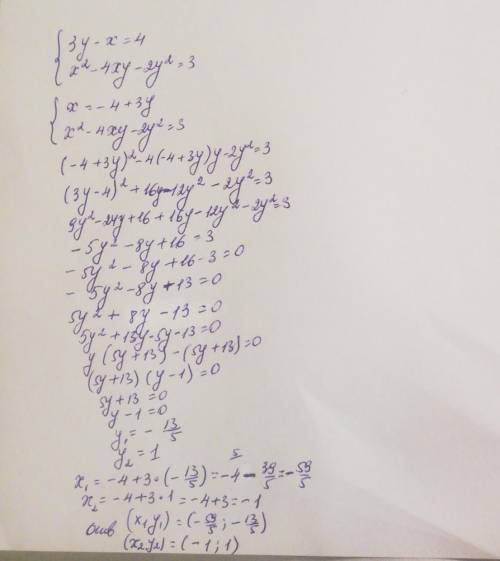 3y - x = 4
x² - 4xy - 2y² = 3
x = -4 + 3y
x² - 4xy - 2y² = 3
(-4 + 3y)² - 4(-4 + 3y)y - 2y² = 3
(3y - 4)² + 16y - 12y² - 2y² = 3
9y² - 24y + 16 + 16y - 12y² - 2y² = 3
-5y² - 8y + 16 = 3
-5y² - 8y + 16 - 3 = 0
-5y² - 8y + 13 = 0
5y² + 8y - 13 = 0
5y² + 13y - 5y - 13 = 0
y(5y + 13) - (5y + 13) = 0
(5y + 13)(y - 1) = 0
5y + 13 = 0
y - 1 = 0
y₁ = -13/5
y₂ = 1
x₁ = -4 + 3·(-13/5) = -4 - 39/5 = -59/5
x₂ = -4 + 3·1 = -4 + 3 = -1
(x₁y₁) = (-59/5; -13/5)
(x₂y₂) = (-1; 1)